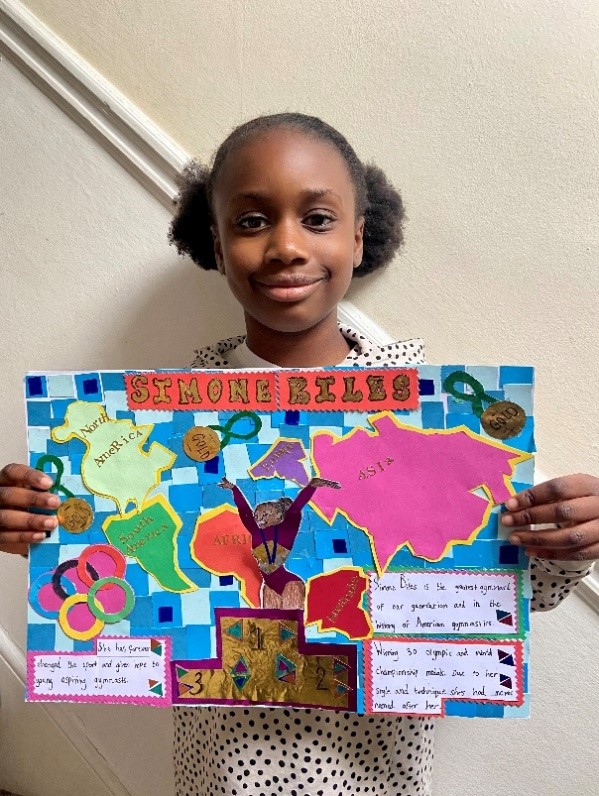 SIMONE BILES
North
AmeRicA
GOLD
GOLD
GOLD
EUROPE
ASIA
South
America
AFRICA
1
3
2
She has forever
changed the sport and given hope to
young aspiring gymnasts.
Simone Biles is the greatest gymnast
of our generation and in the
history of American gymnastics.
Winning 30 olympic and world
championship medals. Due to her
style and technique shes had moves
named after her.